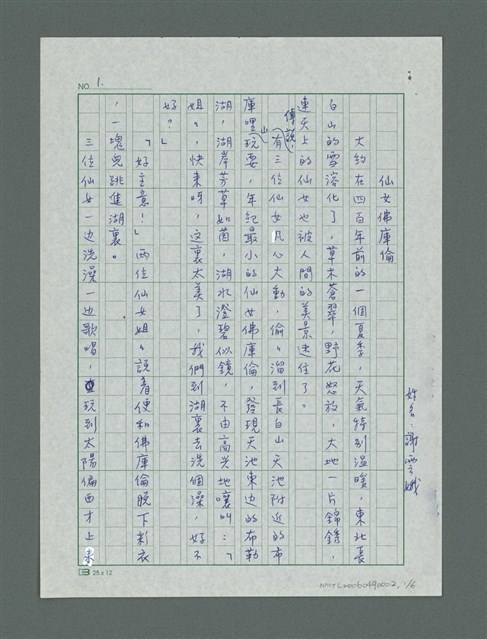 NO. 1.
仙女佛庫倫
姓名：謝雲娥
大約在四百年前的一個夏季，天氣特別溫暖，東北長
白山的雪溶化了，草木蒼翠，野花怒放，大地一片錦銹，
連天上的仙女也被人間的美景迷住了。
傳說，有三位仙女凡心大動，偷々溜到長白山天池附近的布
庫哩山玩耍，年紀最小的仙女佛庫倫，發現天池東边的布勒
湖，湖岸芳草如茵，湖水澄碧似鏡，不由高兴地嚷叫：「
姐々，快來呀，這裏太美了，我們到湖裏去洗個澡，好不
好？」
「好主意！」两位仙女姐々說着便和佛庫倫脫下彩衣
，一塊兒跳進湖裏。
三位仙女一边洗澡一边歌唱，玩到太陽偏西才上來
25x12
NMTL20060490002, 1/6